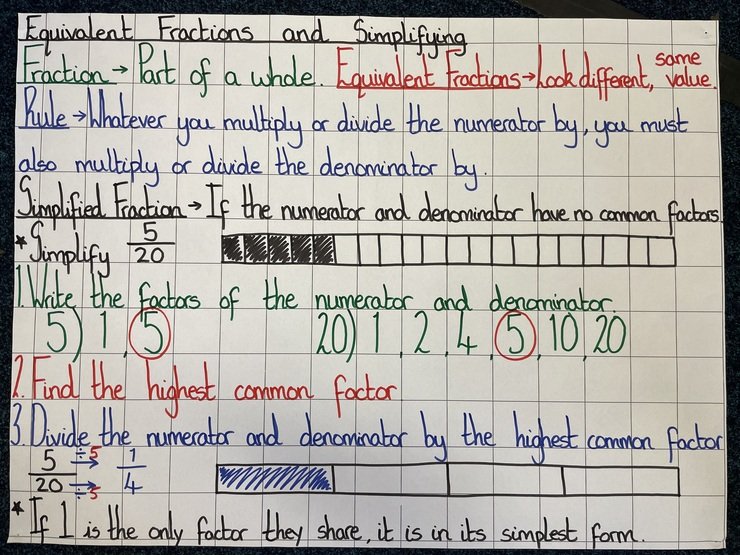 Equivalent Fractions and Simplifying
Fraction → Part of a whole. Equivalent Fractions → Look different, same value.
Rule → Whatever you multiply or divide the numerator by, you must
also multiply or divide the denominator by.
Simplified Fraction → If the numerator and denominator have no common factors.
* Simplify 5/20
1. Write the factors of the numerator and denominator.
5) 1, 5 20) 1, 2, 4, 5, 10, 20
2. Find the highest common factor
3. Divide the numerator and denominator by the highest common factor
5 ÷5 → 1
20 ÷5 → 4
* If 1 is the only factor they share, it is in its simplest form.